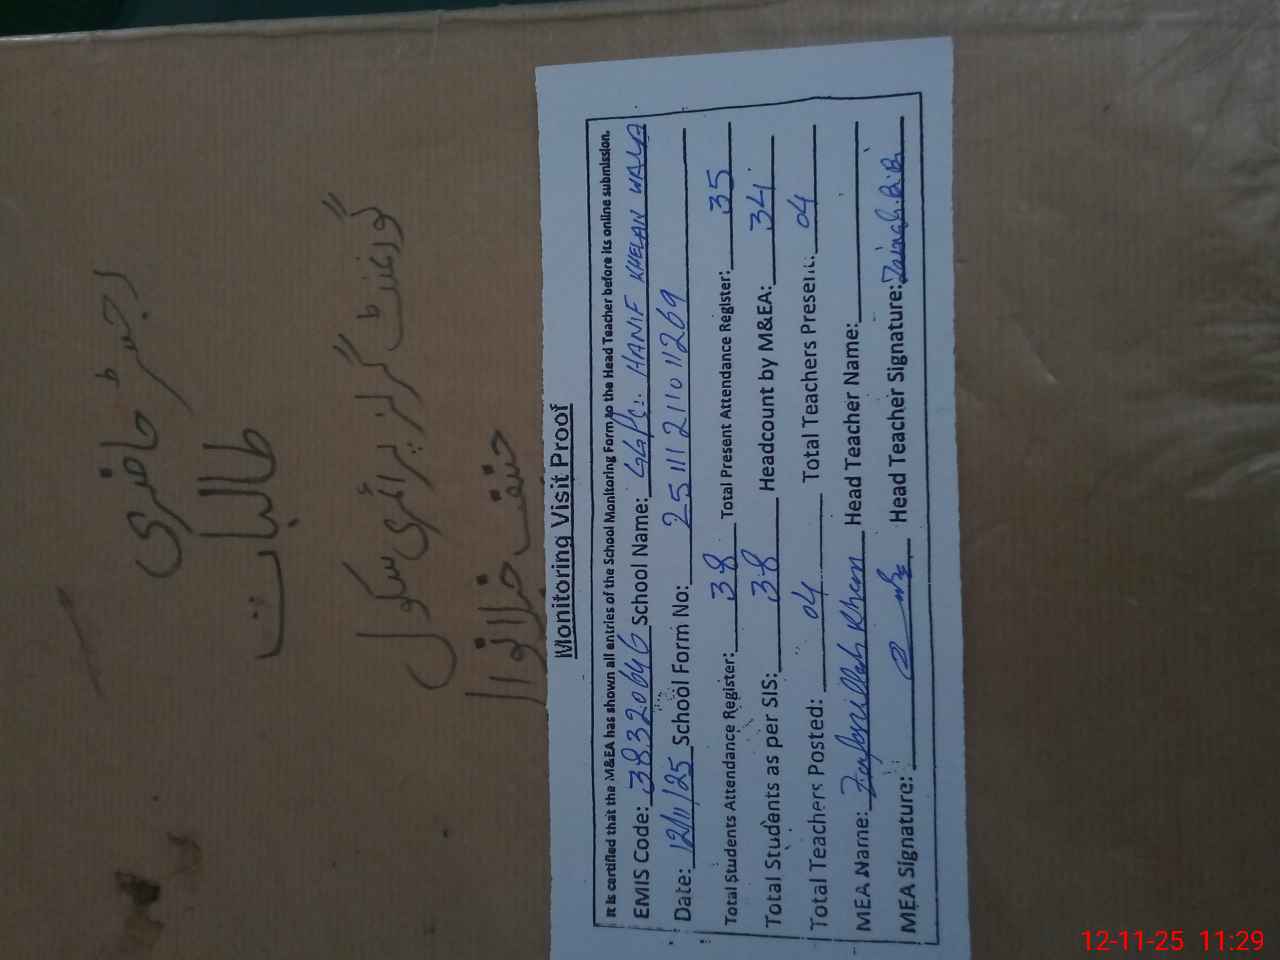 رجسٹر حاضری
طالبات
گورنمنٹ گرلز پرائمری سکول
حنیف خیلانوالا
Monitoring Visit Proof
It is certified that the M&EA has shown all entries of the School Monitoring Form to the Head Teacher before its online submission.
EMIS Code: 38320646 School Name: GGPS. HANIF KHELAN WALA
Date: 12/11/25 School Form No: 25111211011269
Total Students Attendance Register: 38 Total Present Attendance Register: 35
Total Students as per SIS: 38 Headcount by M&EA: 34
Total Teachers Posted: 04 Total Teachers Present: 04
MEA Name: Zafarullah Khan Head Teacher Name:
MEA Signature: Head Teacher Signature: Zainab.Bibi
12-11-25 11:29